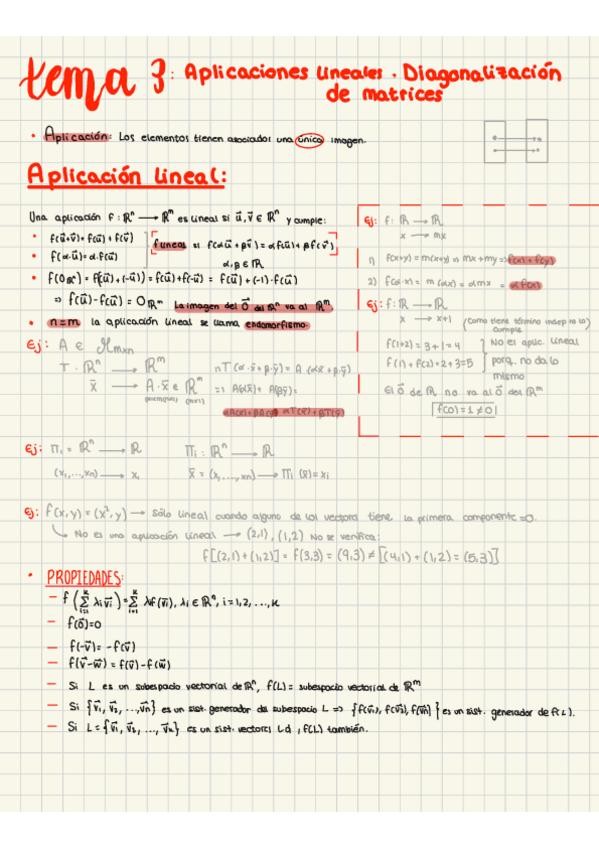 tema 3: Aplicaciones lineales. Diagonalización
de matrices
• Aplicación: Los elementos tienen asociador una única imagen.
Aplicación lineal:
Una aplicación f: ℝⁿ → ℝᵐ es lineal si u⃗, v⃗ ∈ ℝⁿ y cumple:
• f(u⃗+v⃗)= f(u⃗) + f(v⃗)
f lineal si f(αu⃗ + βv⃗) = αf(u⃗) + βf(v⃗)
• f(α·u⃗)=α.f(u⃗)
α, β ∈ ℝ
• f(0ℝⁿ) = f(u⃗+(-u⃗)) = f(u⃗)+f(-u⃗) = f(u⃗) + (-1)·f(u⃗)
⇒ f(u⃗) - f(u⃗) = 0ℝᵐ La imagen del 0⃗ del ℝⁿ va al ℝᵐ
• n=m la aplicación lineal se llama endomorfismo.
Ej: f: ℝ → ℝ
x → mx
1) f(x+y) = m(x+y) = mx+my = f(x) + f(y)
2) f(α·x) = m(αx) = αmx = αf(x)
Ej: f: ℝ → ℝ
x → x+1 (como tiene término indep no lo cumple)
f(1+2) = 3+1 = 4
f(1) + f(2) = 2+3 = 5
No es aplic. lineal
porq. no da lo
mismo
El 0⃗ de ℝ no va al 0⃗ del ℝᵐ
f(0) = 1 ≠ 0
Ej: A ∈ Mmxn
T: ℝⁿ → ℝᵐ
x̄ → A·x̄ ∈ ℝᵐ
T(α·x̄+β·ȳ) = A·(αx̄+β·ȳ)
= A(αx̄) + A(βȳ) =
αA(x̄) + βA(ȳ) αT(x̄) + βT(ȳ)
Ej: Π₁ = ℝⁿ → ℝ
(x₁,...,xn) → x₁
Πi: ℝⁿ → ℝ
x̄ = (x₁,...,xn) → Πi (x̄) = xi
Ej: f(x,y) = (x², y) → sólo lineal cuando alguno de los vectores tiene la primera componente =0.
↳ No es una aplicación lineal → (2,1), (1,2) No se verifica:
f[(2,1) + (1,2)] = f(3,3) = (9,3) ≠ [(4,1) + (1,2) = (5,3)]
• PROPIEDADES:
– f (∑ λi v⃗i) = ∑ λif(v⃗i), λi ∈ ℝⁿ, i=1,2,...,k
– f(0⃗)=0
– f(-v⃗) = -f(v⃗)
– f(v⃗-w⃗) = f(v⃗) - f(w⃗)
– Si L es un subespacio vectorial de ℝⁿ, f(L) = subespacio vectorial de ℝᵐ
– Si {v⃗₁, v⃗₂, ..., v⃗n} es un sist. generador del subespacio L ⇒ {f(v⃗₁), f(v⃗₂), f(v⃗n)} es un sist. generador de f(L).
– Si L = {v⃗₁, v⃗₂, ..., v⃗n} es un sist. vectores l.d, f(L) también.